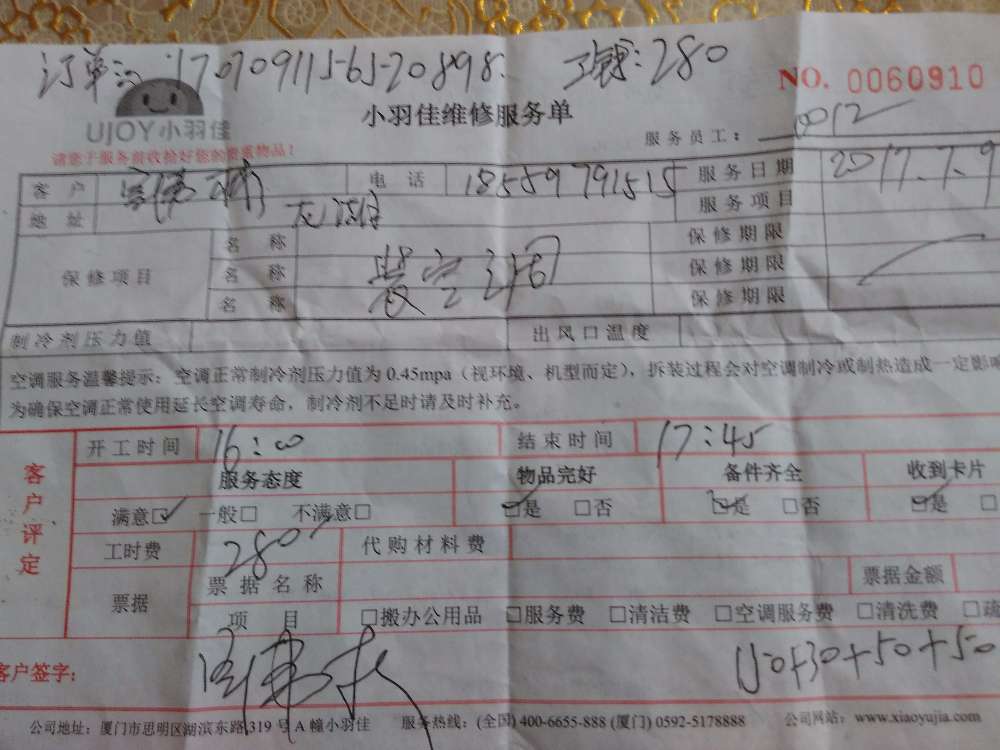 订单号 1707091156520898. 工钱:280
NO. 0060910
UJOY小羽佳
小羽佳维修服务单
服务员工:
请您于服务前收拾好您的贵重物品!
客户 电话 18559791515 服务日期 2017.7.9
地址 服务项目
保修项目 名称 保修期限
名称 装空调 保修期限
名称 保修期限
制冷剂压力值 出风口温度
空调服务温馨提示:空调正常制冷剂压力值为 0.45mpa(视环境、机型而定),拆装过程会对空调制冷或制热造成一定影响
为确保空调正常使用延长空调寿命,制冷剂不足时请及时补充。
客户评定
开工时间 16:00 结束时间 17:45
服务态度 物品完好 备件齐全 收到卡片
满意☑ 一般□ 不满意□ ☑是 □否 ☑是 □否 ☑是 □
工时费 280 代购材料费
票据 票据名称 票据金额
项目 □搬办公用品 □服务费 □清洁费 □空调服务费 □清洗费 □疏
客户签字: 150+30+50+50
公司地址:厦门市思明区湖滨东路319号A幢小羽佳 服务热线:(全国)400-6655-888 (厦门) 0592-5178888 公司网站:www.xiaoyujia.com